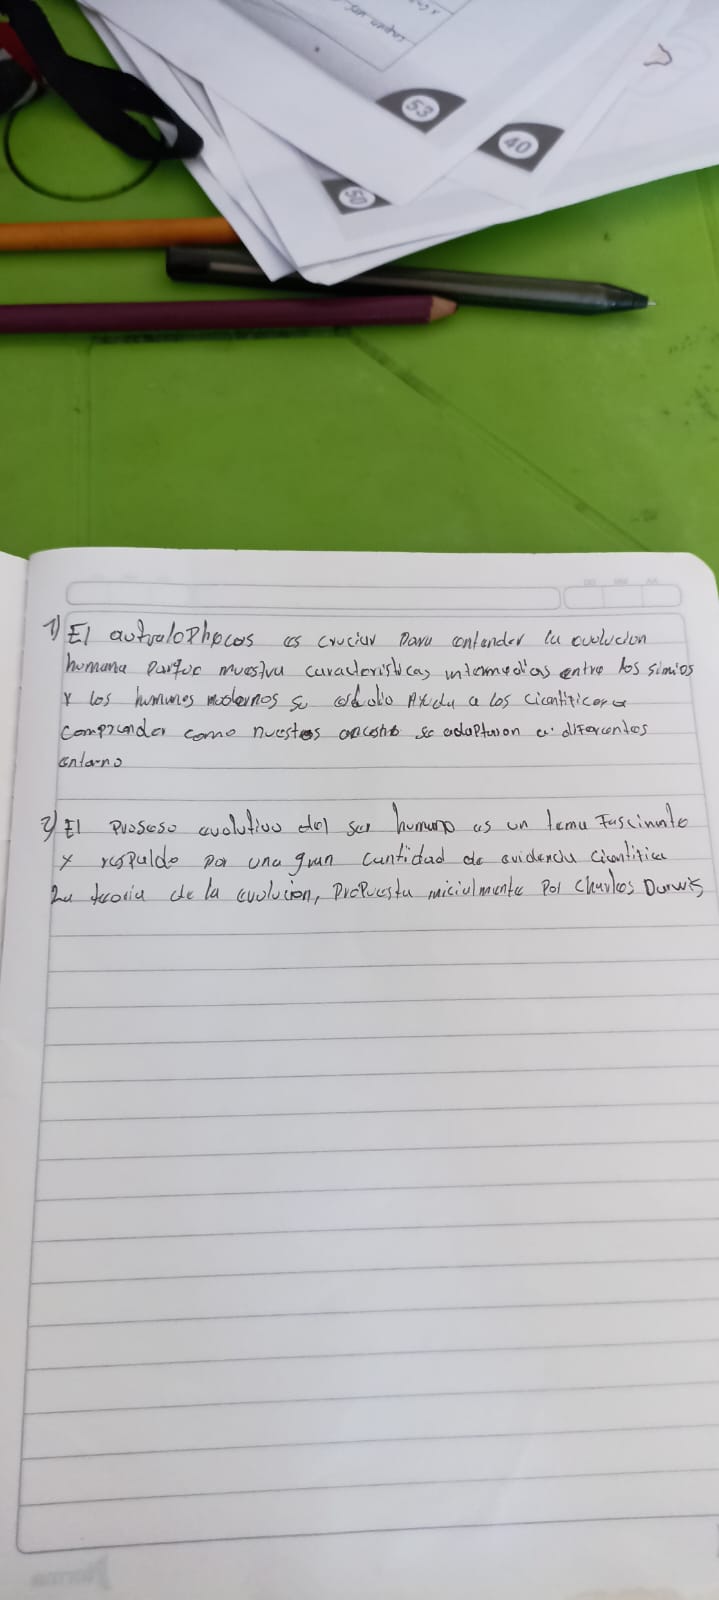 53
40
50
1) El autralophocos es cruciar para entender la evolucion
humana parque muestra caracteristicas intermedias entre los simios
y los humanos modernos su estudio Ayuda a los cientificos a
comprender como nuestos ancestro se adaptaron a diferentes
entorno
2) El proseso evolutivo del ser humano es un tema Fascinante
y respaldo por una gran cantidad de evidencia cientifica
La teoria de la evolucion, Propuesta inicialmente Por Charles Darwis
Norma